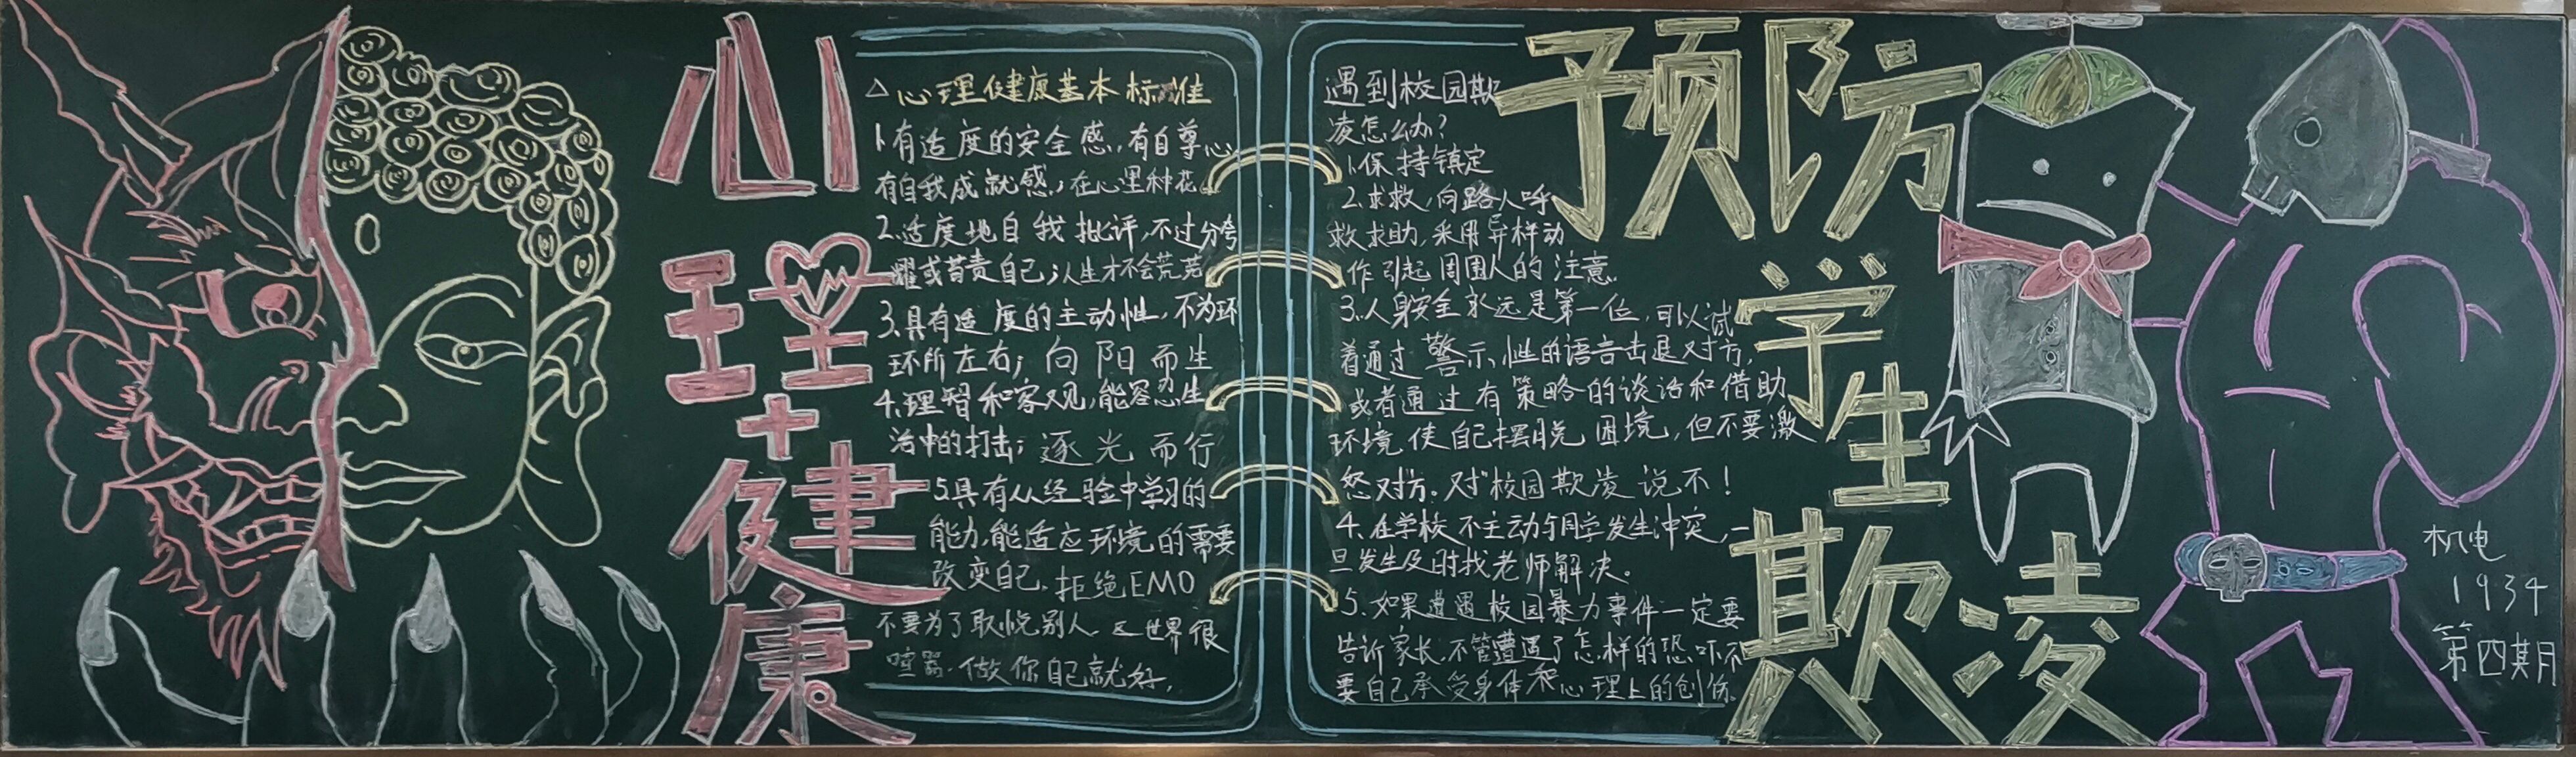 心理健康
△心理健康基本标准
1.有适度的安全感,有自尊心,
有自我成就感,在心里种花。
2.适度地自我批评,不过分夸
耀或苛责自己;人生才不会荒芜
3.具有适度的主动性,不为环
环所左右;向阳而生
4.理智和客观,能容忍生
活中的打击;逐光而行
5.具有从经验中学习的
能力,能适应环境的需要
改变自己.拒绝EMO
不要为了取悦别人.世界很
喧嚣.做你自己就好.
遇到校园欺
凌怎么办?
1.保持镇定
2.求救,向路人呼
救求助,采用异样动
作引起周围人的注意。
3.人身安全永远是第一位,可以试
着通过警示性的语言击退对方,
或者通过有策略的谈话和借助
环境使自己摆脱困境,但不要激
怒对方。对校园欺凌说不!
4.在学校不主动与同学发生冲突,一
旦发生及时找老师解决。
5.如果遭遇校园暴力事件一定要
告诉家长,不管遭遇了怎样的恐吓不
要自己承受身体和心理上的创伤。
预防
学生
欺凌
机电
1934
第四期